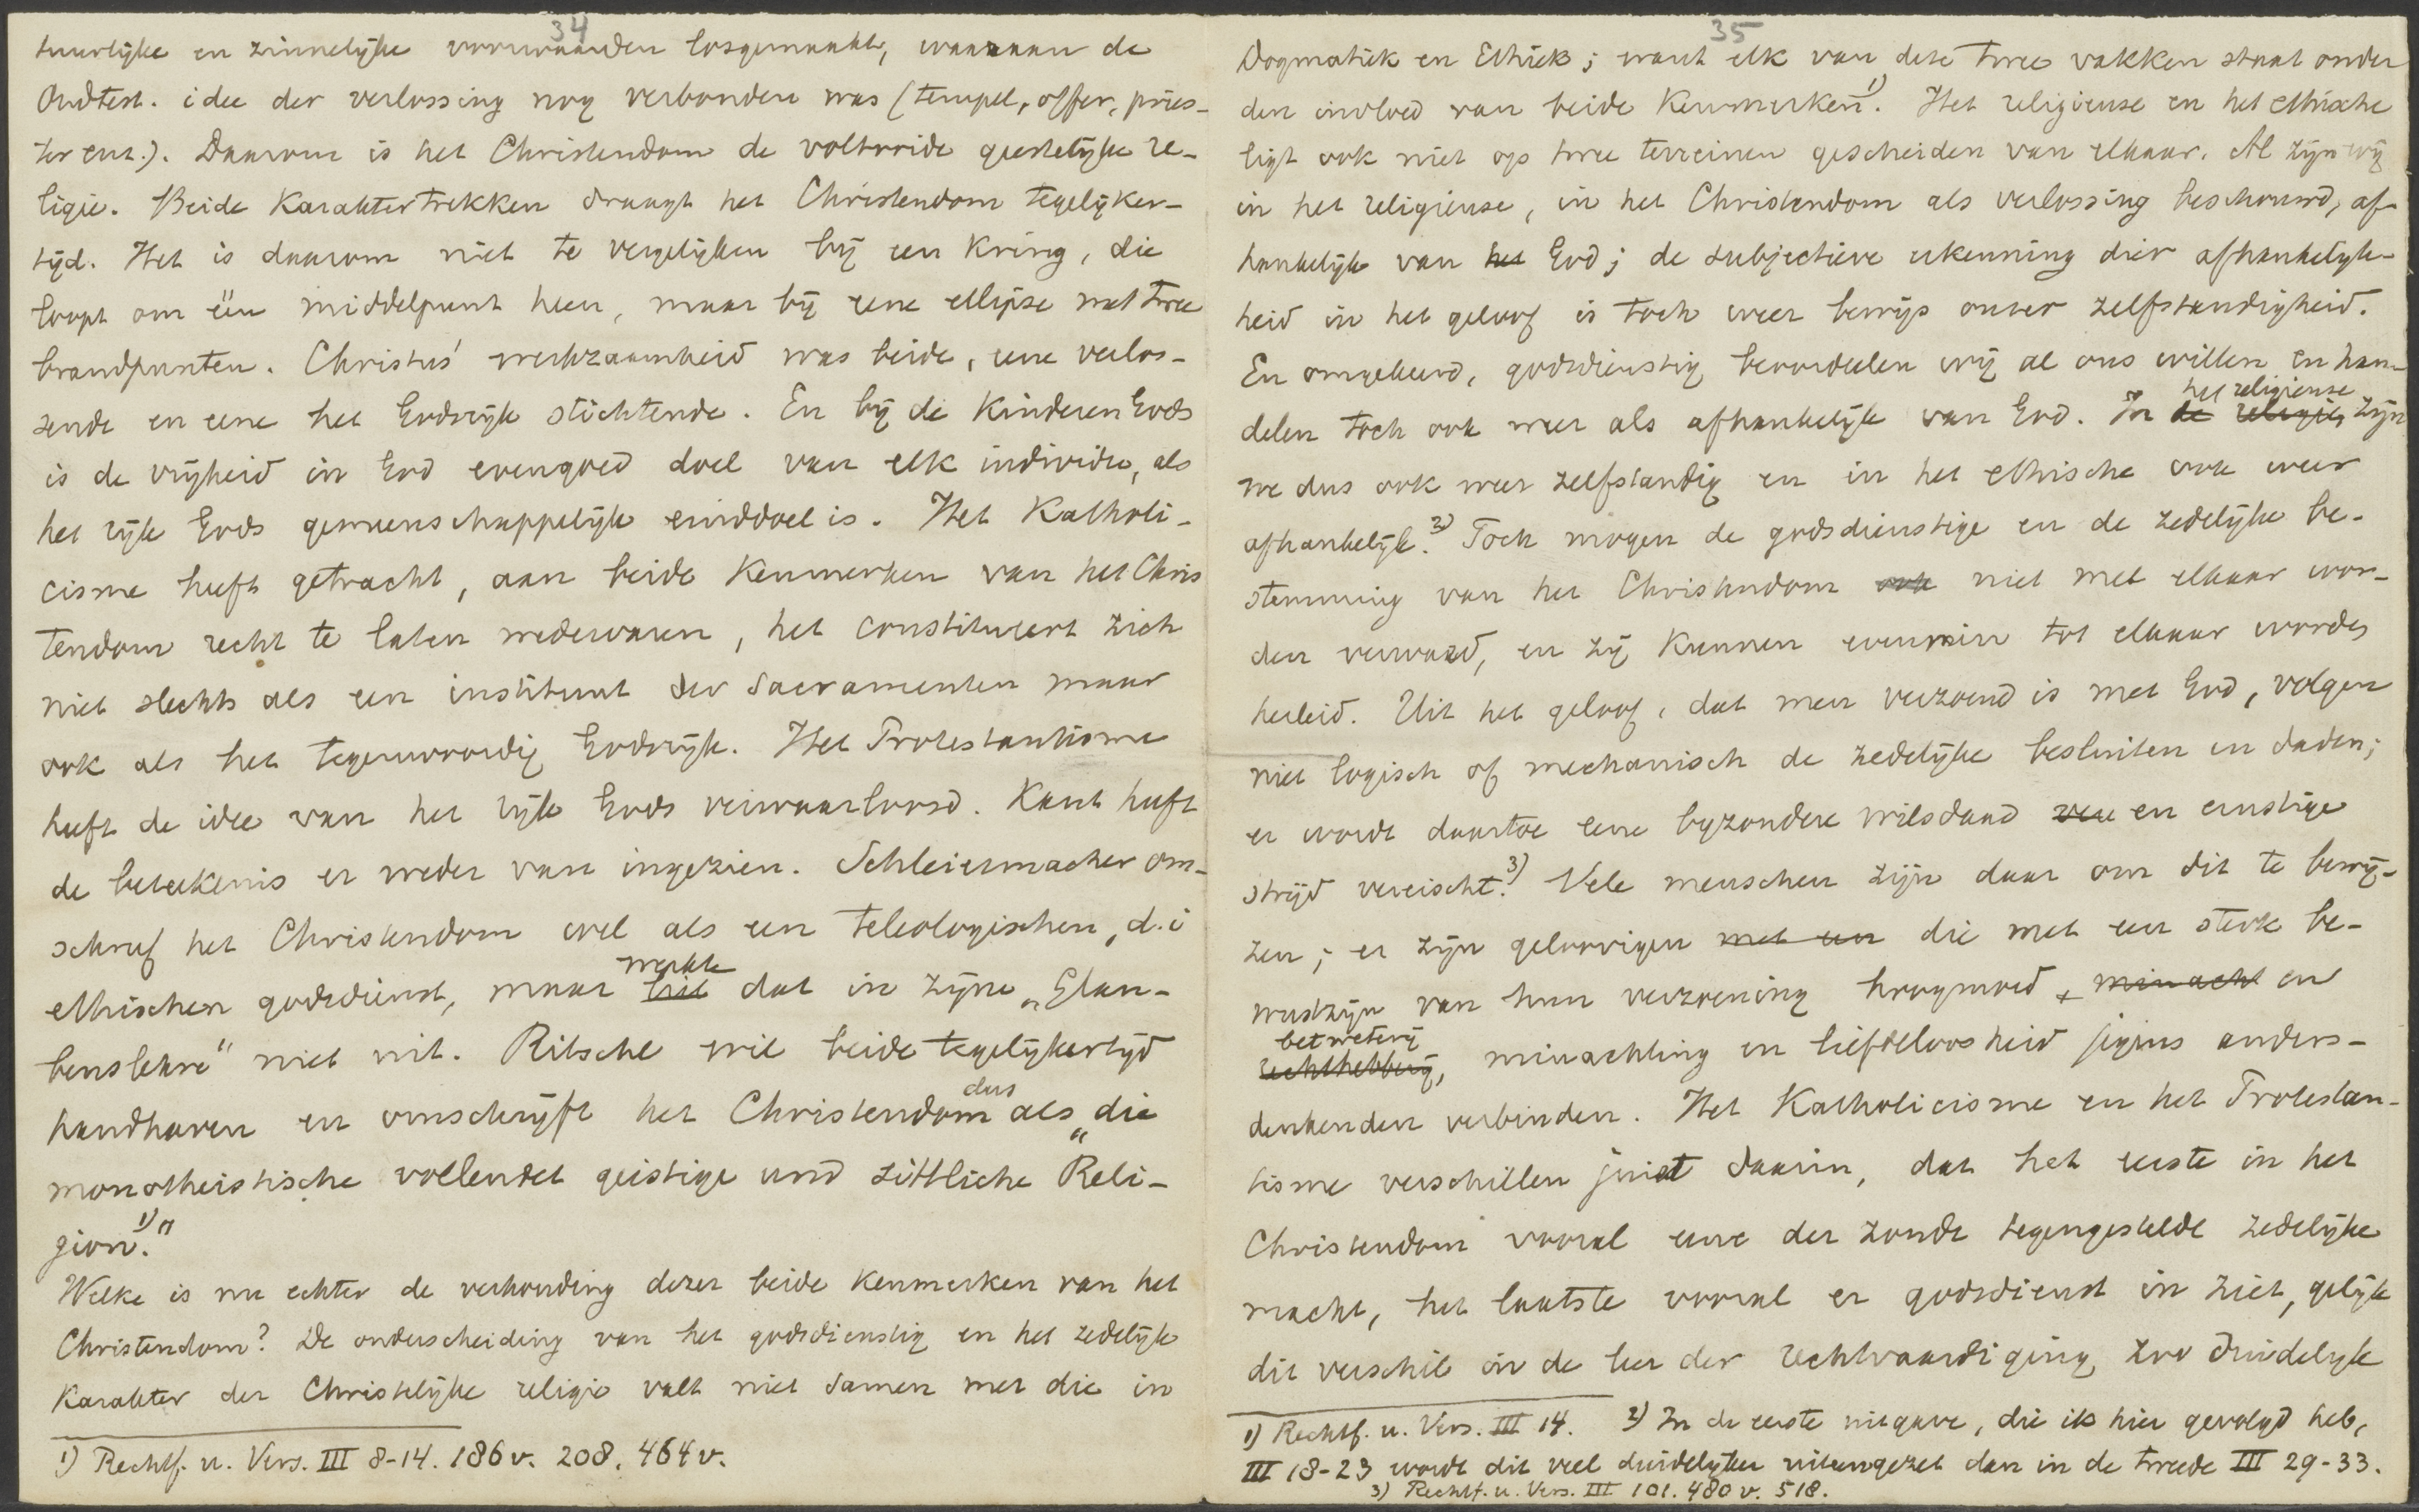 34
tuurlijke en zinnelijke voorwaarden losgemaakt, waaraan de
Oudtest. idee der verlossing nog verbonden was (tempel, offer, pries-
ter enz.). Daarom is het Christendom de voltooide geestelijke re-
ligie. Beide karaktertrekken draagt het Christendom tegelijker-
tijd. Het is daarom niet te vergelijken bij een kring, die
loopt om één middelpunt heen, maar bij eene ellipse met twee
brandpunten. Christus' werkzaamheid was beide, eene verlos-
sende en eene het Godsrijk stichtende. En bij de kinderen Gods
is de vrijheid in God evengoed doel van elk individu, als
het rijk Gods gemeenschappelijk einddoel is. Het Katholi-
cisme heeft getracht, aan beide kenmerken van het Chris
tendom recht te laten wedervaren, het constitueert zich
niet slechts als een instituut der Sacramenten maar
ook als het tegenwoordig Godsrijk. Het Protestantisme
heeft de idee van het rijk Gods verwaarloosd. Kant heeft
de beteekenis er weder van ingezien. Schleiermacher om-
schreef het Christendom wel als een teleologischen, d.i
ethischen godsdienst, maar werkte dat in zijne „Glau-
benslehre" niet uit. Ritschl wil beide tegelijkertijd
handhaven en omschrijft het Christendom dus als „die
monotheistische vollendet geistige und sittliche Reli-
gion.1)"
Welke is nu echter de verhouding dezer beide kenmerken van het
Christendom? De onderscheiding van het godsdienstig en het zedelijk
karakter der Christelijke religie valt niet samen met die in
1) Rechtf. u. Vers. III 8-14. 186 v. 208. 464 v.
35
Dogmatiek en Ethiek; want elk van deze twee vakken staat onder
den invloed van beide kenmerken1). Het religieuse en het ethische
ligt ook niet op twee terreinen gescheiden van elkaar. Al zijn wij
in het religieuse, in het Christendom als verlossing beschouwd, af-
hankelijk van het God; de subjectieve erkenning dier afhankelijk-
heid in het geloof is toch weer bewijs onzer zelfstandigheid.
En omgekeerd, godsdienstig beoordeelen wij al ons willen en han-
delen toch ook weer als afhankelijk van God. In de religie, het religieuse zijn
we dus ook weer zelfstandig en in het ethische ook weer
afhankelijk.2) Toch mogen de godsdienstige en de zedelijke be-
stemming van het Christendom ook niet met elkaar wor-
den verward, en zij kunnen evenmin tot elkaar worden
herleid. Uit het geloof, dat men verzoend is met God, volgen
niet logisch of mechanisch de zedelijke besluiten en daden;
er wordt daartoe eene byzondere wilsdaad en ernstige
strijd vereischt.3) Vele menschen zijn daar om dit te bewij-
zen; er zijn geloovigen met een die met een sterk be-
wustzijn van hun verzoening hoogmoed, minacht en
betweterij rechthebberij, minachting en liefdeloosheid jegens anders-
denkenden verbinden. Het Katholicisme en het Protestan-
tisme verschillen juist daarin, dat het eerste in het
Christendom vooral eene der zonde tegengestelde zedelijke
macht, het laatste vooral er godsdienst in ziet, gelijk
dit verschil in de leer der rechtvaardiging zoo duidelijk
1) Rechtf. u. Vers. III 14. 2) In de eerste uitgave, die ik hier gevolgd heb,
III 18-23 wordt dit veel duidelijker uiteengezet dan in de tweede III 29-33.
3) Rechtf. u. Vers. III 101. 480 v. 518.